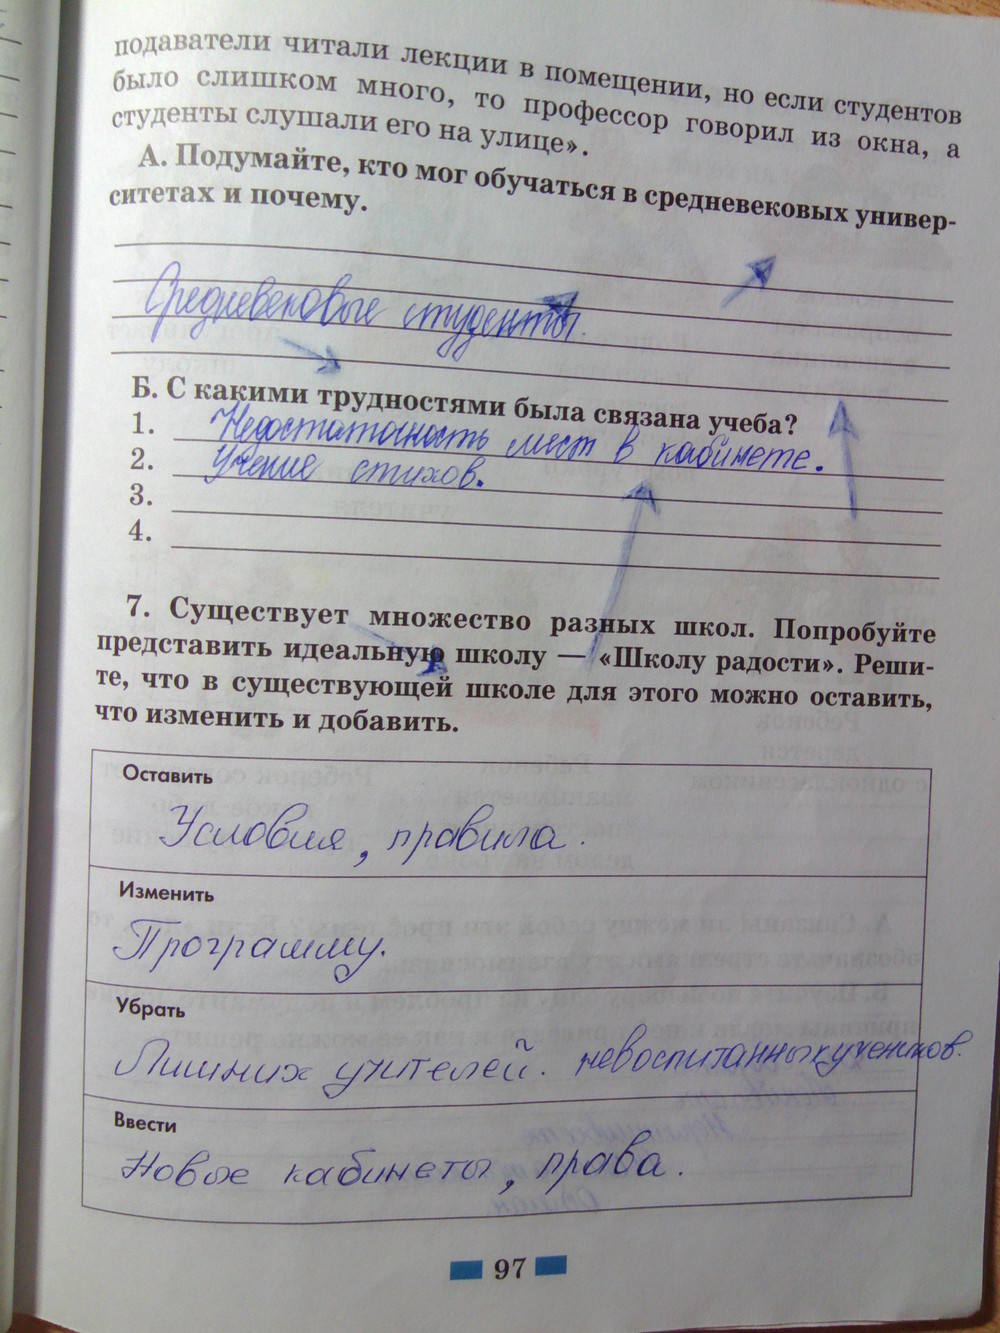 подаватели читали лекции в помещении, но если студентов
было слишком много, то профессор говорил из окна, а
студенты слушали его на улице».
А. Подумайте, кто мог обучаться в средневековых универ-
ситетах и почему.
Средневековые студенты.
Б. С какими трудностями была связана учеба?
1. Недостаточность мест в кабинете.
2. Учение стихов.
3.
4.
7. Существует множество разных школ. Попробуйте
представить идеальную школу — «Школу радости». Реши-
те, что в существующей школе для этого можно оставить,
что изменить и добавить.
Оставить
Условия, правила.
Изменить
Программу.
Убрать
Лишних учителей. невоспитанных учеников.
Ввести
Новые кабинеты, права.
97